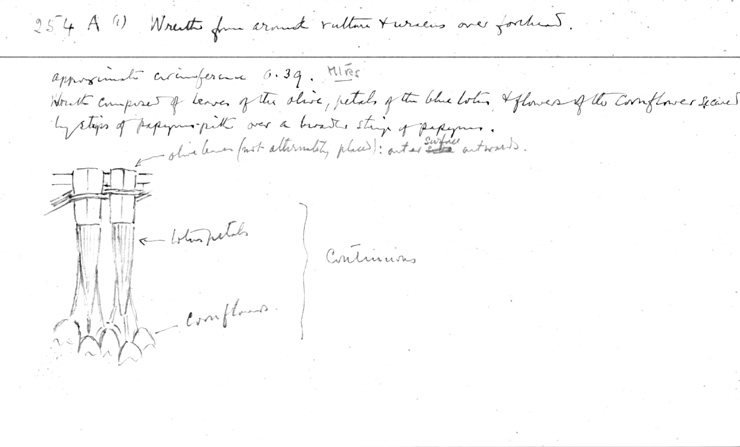 254 A (1) Wreath from around vulture & uraeus over forehead.
approximate circumference 0.39. Mtres
Wreath composed of leaves of the olive, petals of the blue lotus, & flowers of the cornflower secured
by strips of papyrus-pith over a broader strip of papyrus.
olive leaves (not alternately placed): outer surface outwards.
lotus petals
Continuous
Cornflowers